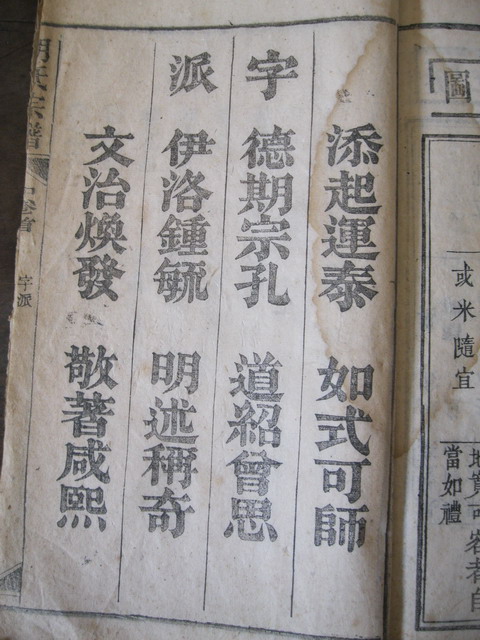 圖
或米隨宜
當如禮
添起運泰 如式可師
字 德期宗孔 道紹曾思
派 伊洛鍾毓 明述稱奇
文治煥發 敬著咸熙
氏宗譜
卷首
字派